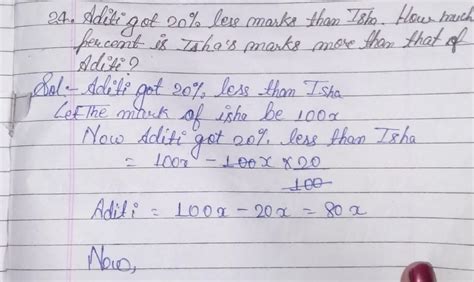 24. Aditi got 20% less marks than Isha. How much
percent is Isha's marks more than that of
Aditi?
Sol:- Aditi got 20% less than Isha
Let The mark of isha be 100x
Now Aditi got 20% less than Isha
= 100x - 100x × 20
100
Aditi = 100x - 20x = 80x
Now,